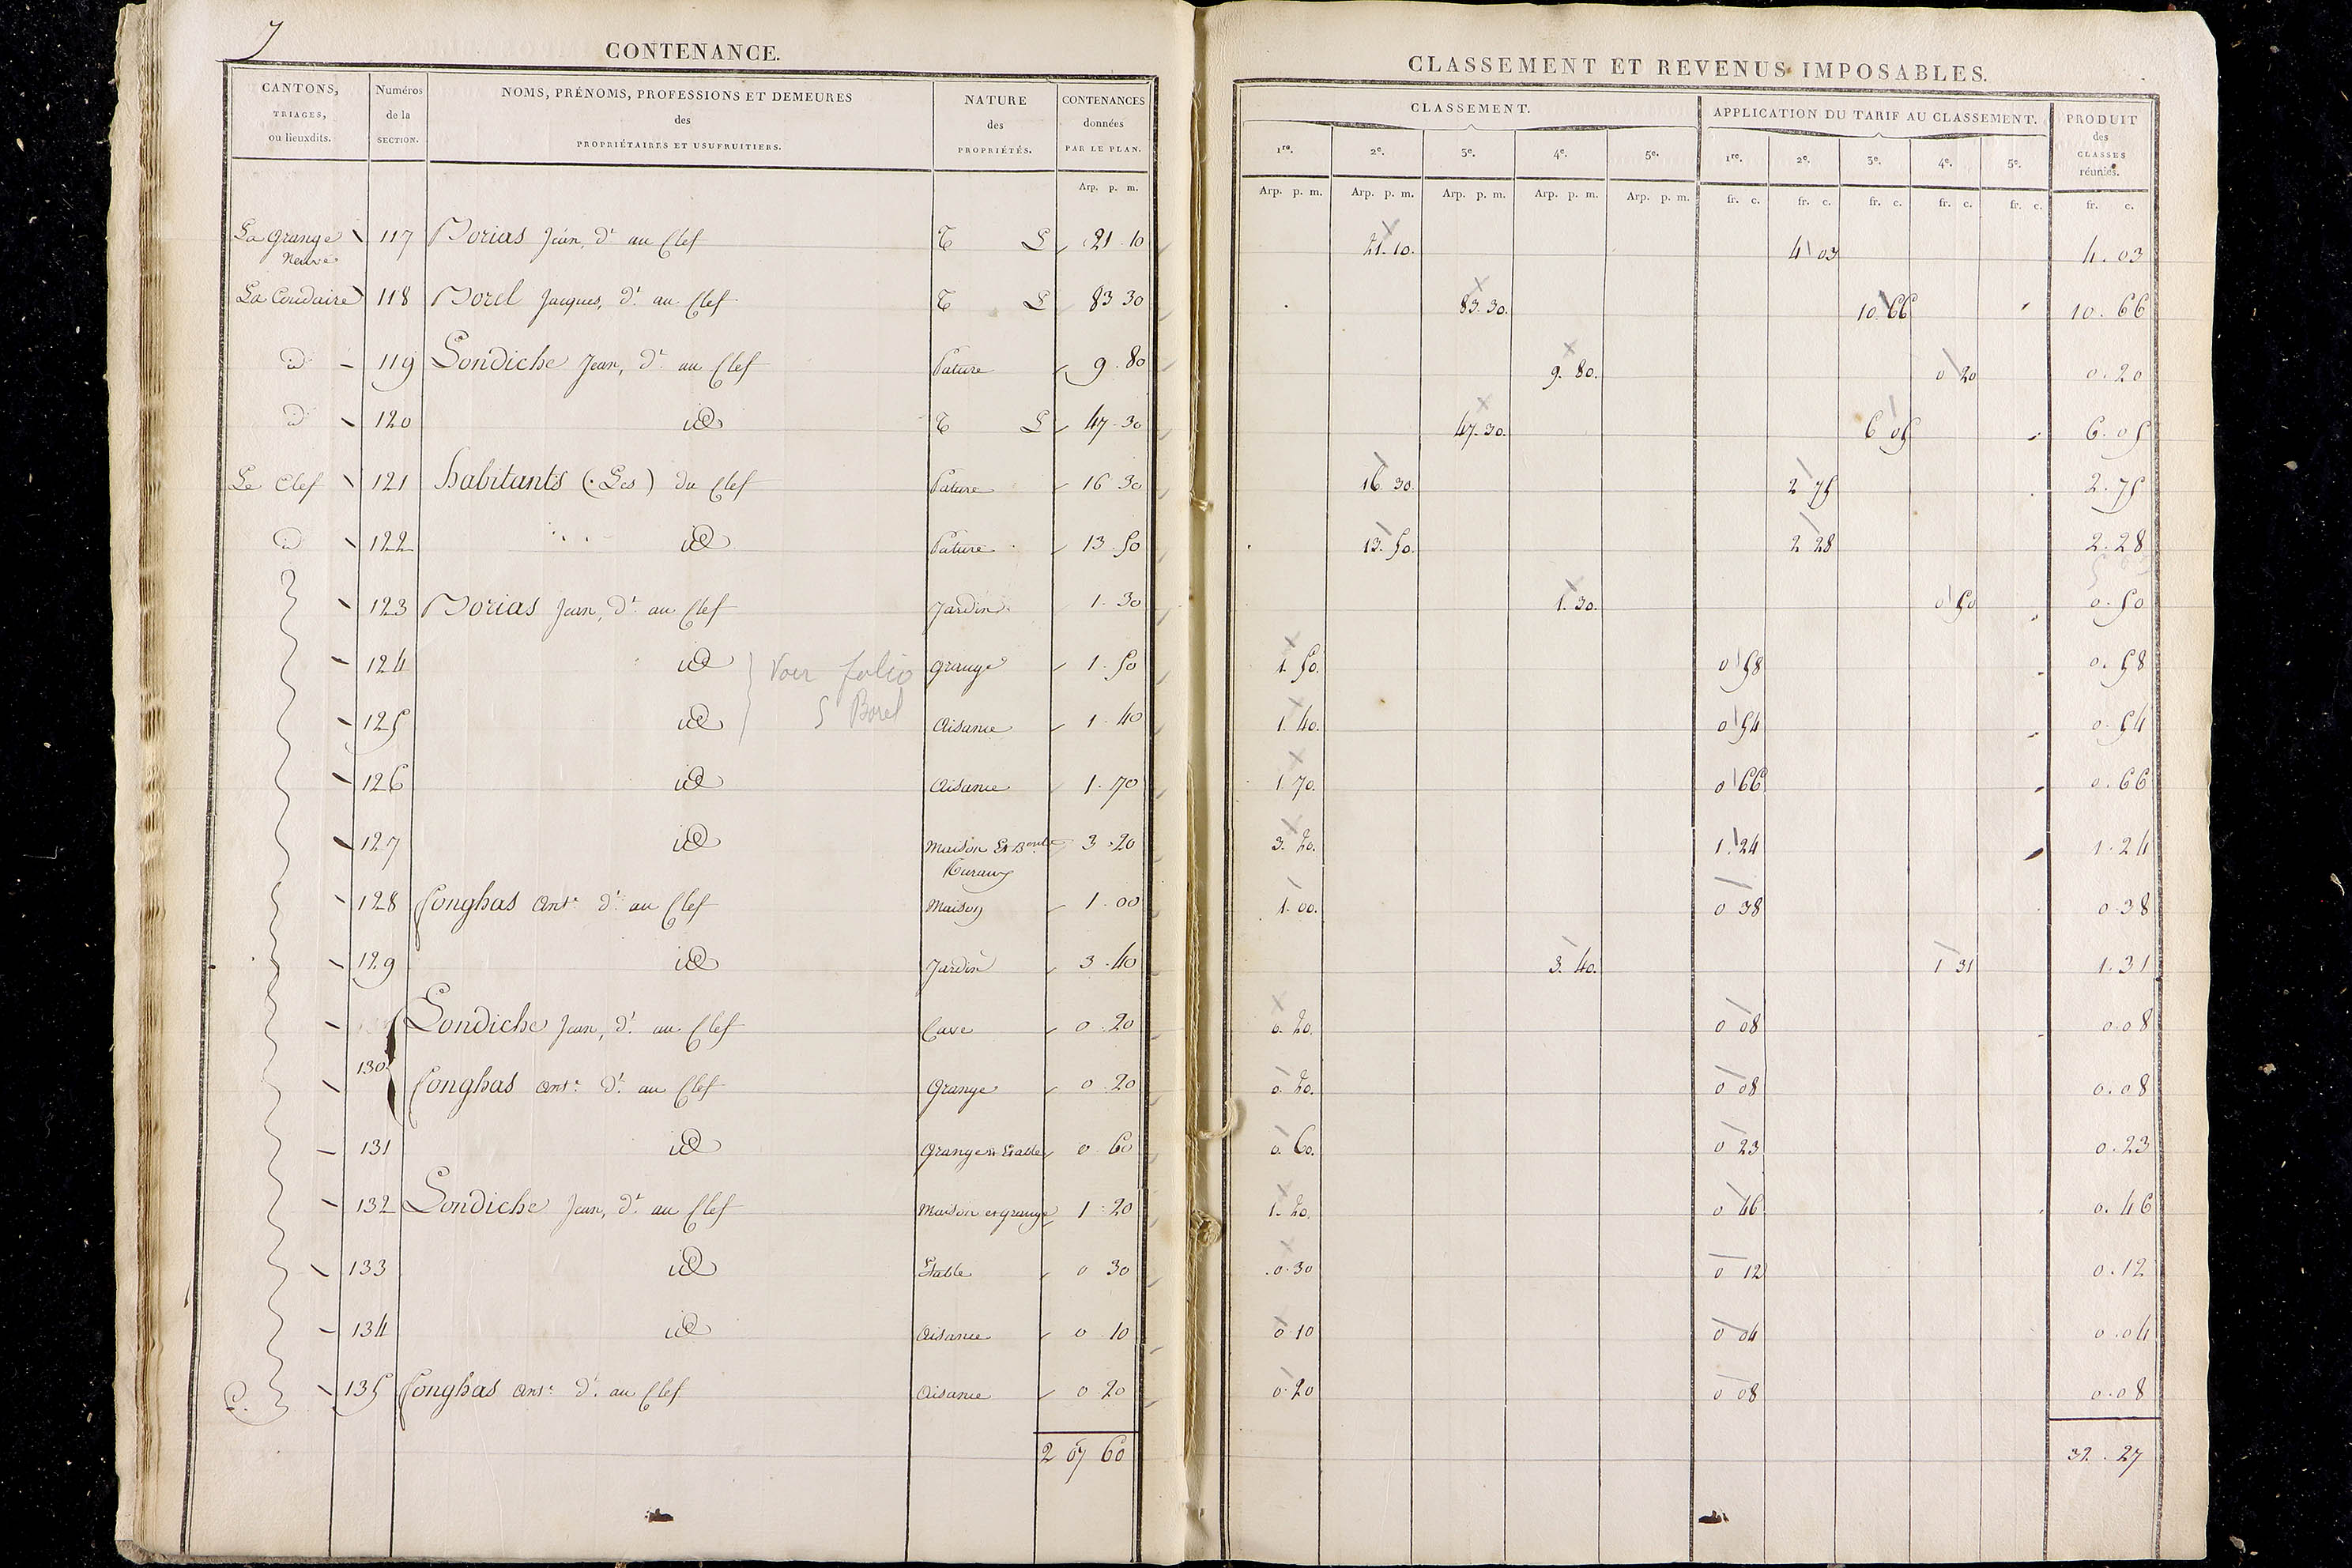 7
CONTENANCE.
CANTONS, TRIAGES, ou lieuxdits.
Numéros de la SECTION.
NOMS, PRÉNOMS, PROFESSIONS ET DEMEURES des PROPRIÉTAIRES ET USUFRUITIERS.
NATURE des PROPRIÉTÉS.
CONTENANCES données PAR LE PLAN.
Arp. p. m.
CLASSEMENT ET REVENUS IMPOSABLES.
CLASSEMENT.
APPLICATION DU TARIF AU CLASSEMENT.
PRODUIT des CLASSES réunies.
1re. 2e. 3e. 4e. 5e. 1re. 2e. 3e. 4e. 5e.
Arp. p. m. Arp. p. m. Arp. p. m. Arp. p. m. Arp. p. m. fr. c. fr. c. fr. c. fr. c. fr. c. fr. c.
La Grange Neuve 117 Borias Jean, dt au Clef T L 21 10 21. 10. 4 03 4. 03
118 Borel Jacques, dt au Clef T L 83 30 83. 30. 10. 66 10. 66
d 119 Londiche Jean, dt au Clef Pature 9. 80 9. 80. 0 20 0. 20
d 120 id T L 47 30 47. 30. 6 05 6. 05
Le Clef 121 habitants (Les) du Clef Pature 16 30 16 30. 2 75 2. 75
d 122 id Pature 13 50 13. 50. 2 28 2. 28
123 Borias Jean, dt au Clef Jardin 1. 30 1. 30. 0 50 0. 50
124 id Grange 1. 50 1. 50. 0 58 0. 58
Voir folio
5 Borel
125 id Aisance 1. 40 1. 40. 0 54 0. 54
126 id Aisance 1. 70 1 70. 0 66 0. 66
127 id Maison et 3. 20 3. 20. 1. 24 1. 24
128 Conghas Ante dt au Clef Maison 1. 00 1. 00. 0 38 0 38
129 id Jardin 3. 40 3. 40. 1 31 1. 31
130 Londiche Jean, dt au Clef Cave 0. 20 0. 20. 0 08 0.08
Conghas Ante dt au Clef Grange 0. 20 0. 20. 0 08 0.08
131 id Grange et Etable 0. 60 0. 60. 0 23 0.23
132 Londiche Jean, dt au Clef Maison et grange 1. 20 1. 20. 0 46 0. 46
133 id Etable 0 30 0 30 0 12 0.12
134 id Aisance 0 10 0 10 0 04 0.04
135 Conghas Ante dt au Clef Aisance 0 20 0. 20 0 08 0.08
2 07 60
32. 27